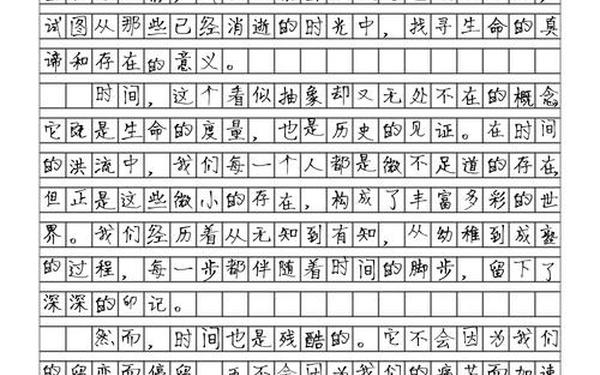 试图从那些已经消逝的时光中，找寻生命的真
谛和存在的意义。
时间，这个看似抽象却又无处不在的概念
它既是生命的度量，也是历史的见证。在时间
的洪流中，我们每一个人都是微不足道的存在
但正是这些微小的存在，构成了丰富多彩的世
界。我们经历着从无知到有知，从幼稚到成熟
的过程，每一步都伴随着时间的脚步，留下了
深深的印记。
然而，时间也是残酷的。它不会因为我们
的留恋而停留，不会因为我们的痛苦而加速